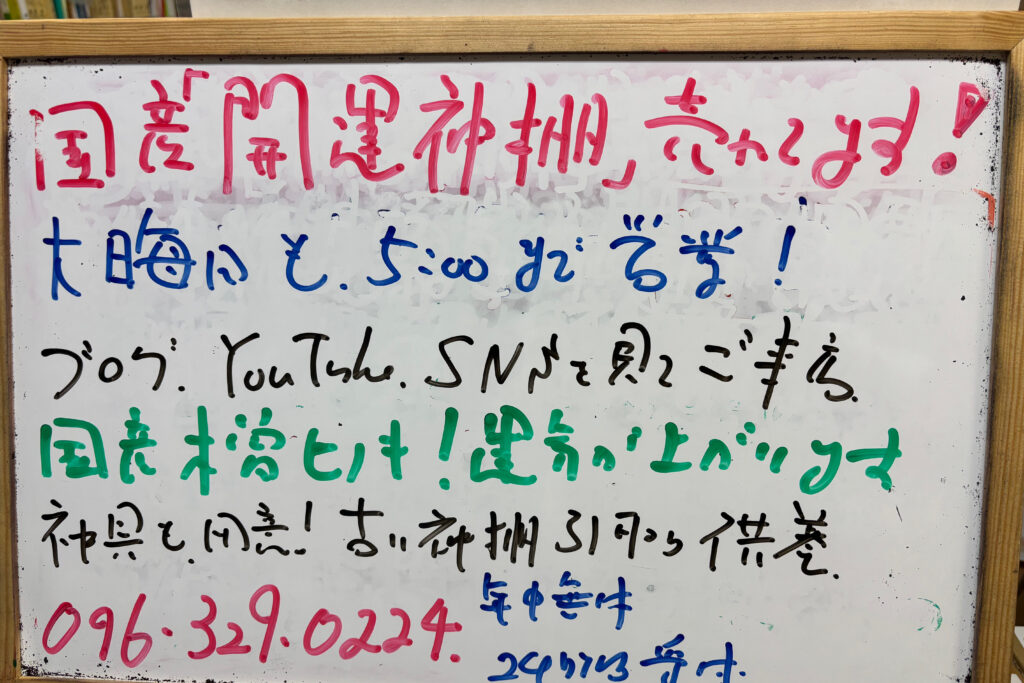 国産「開運神棚」売れてます!
大晦日も、5:00まで営業!
ブログ、YouTube、SNSを見てご来店。
国産檜ヒノキ!運気が上がります
神具も用意!古い神棚引取り供養。
096・329・0224.
年中無休
24時間受付.